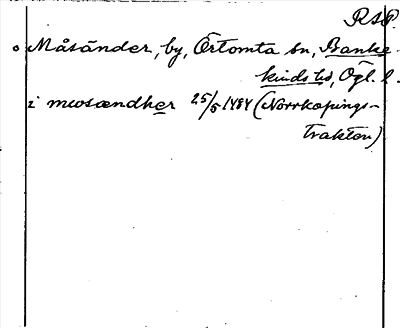 RSP.
o Måsänder, by, Örtomta sn, Banke-
kinds hd, Ögl. l.
i mwsændher 25/5 1484 (Norrköpings-
trakten)